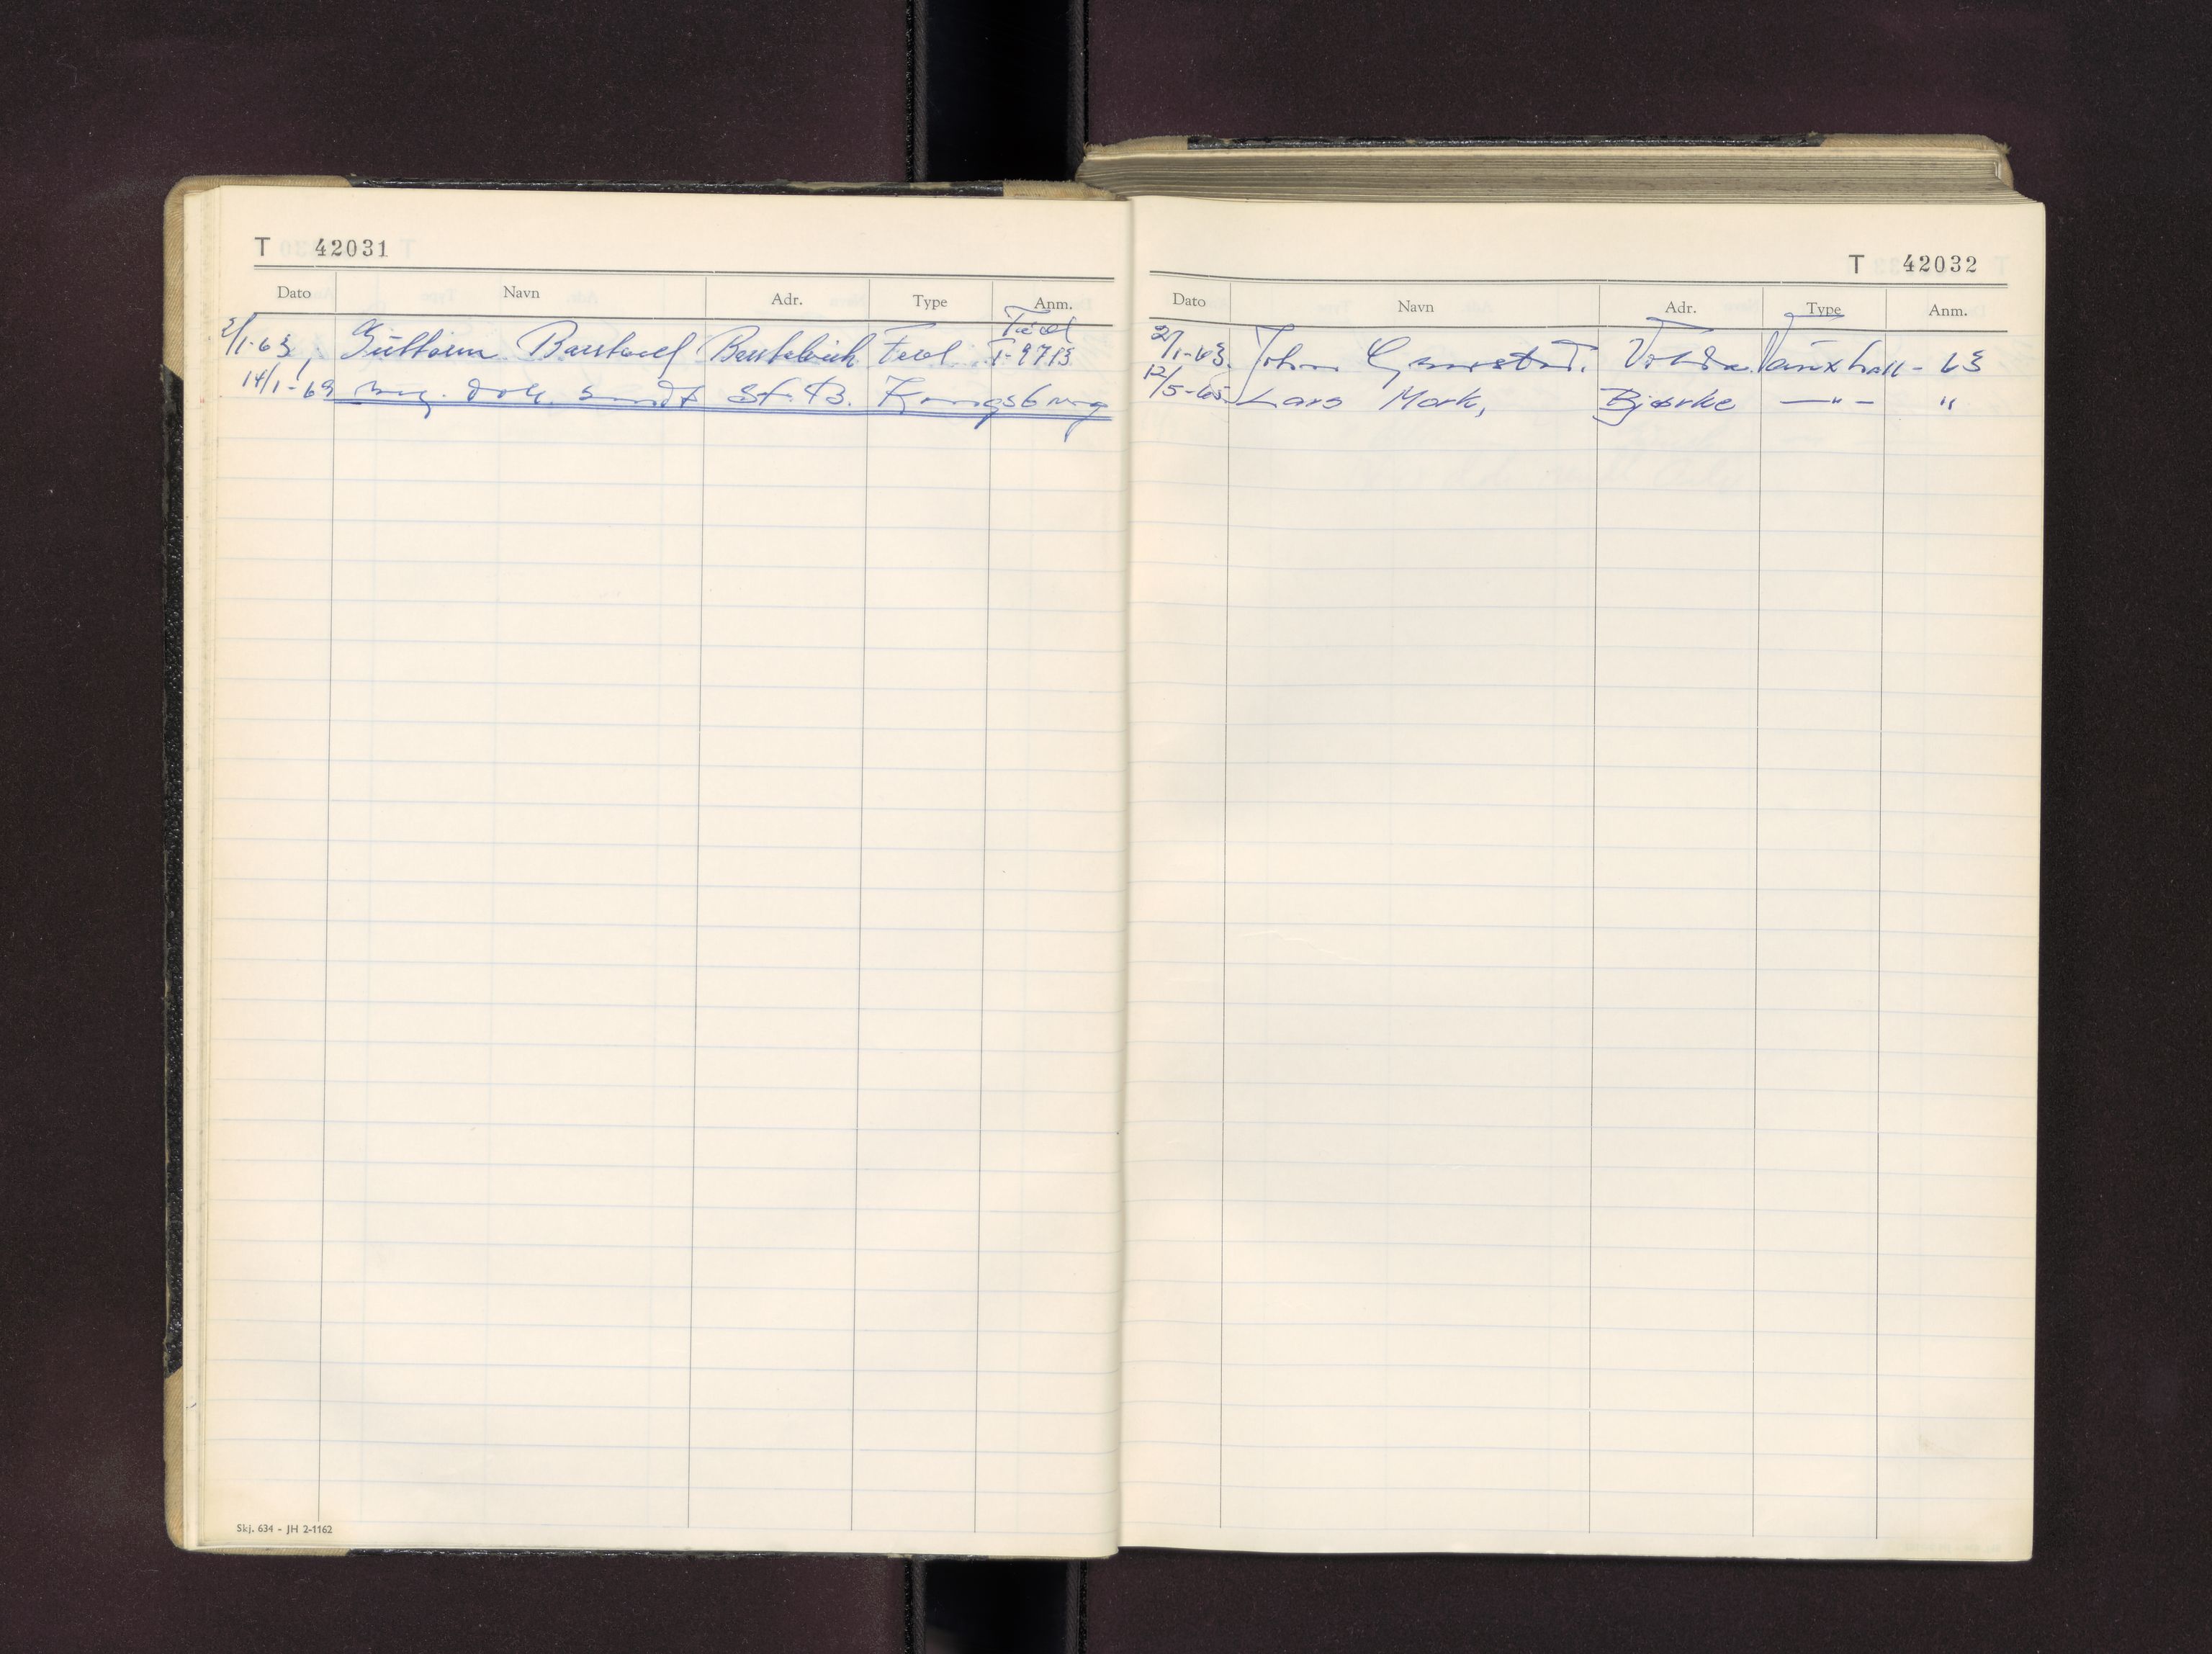 T 42031
Dato Navn Adr. Type Anm.
2/1-63 Guttorm Barstad Ford T-9713
14/1-69 mg. dok. sendt St. B. Kongsberg
Skj. 634 - JH 2-1162
T 42032
Dato Navn Adr. Type Anm.
2/1-63. John Volda Vauxhall - 63
12/5-65. Lars Mork, Bjørke —"— "